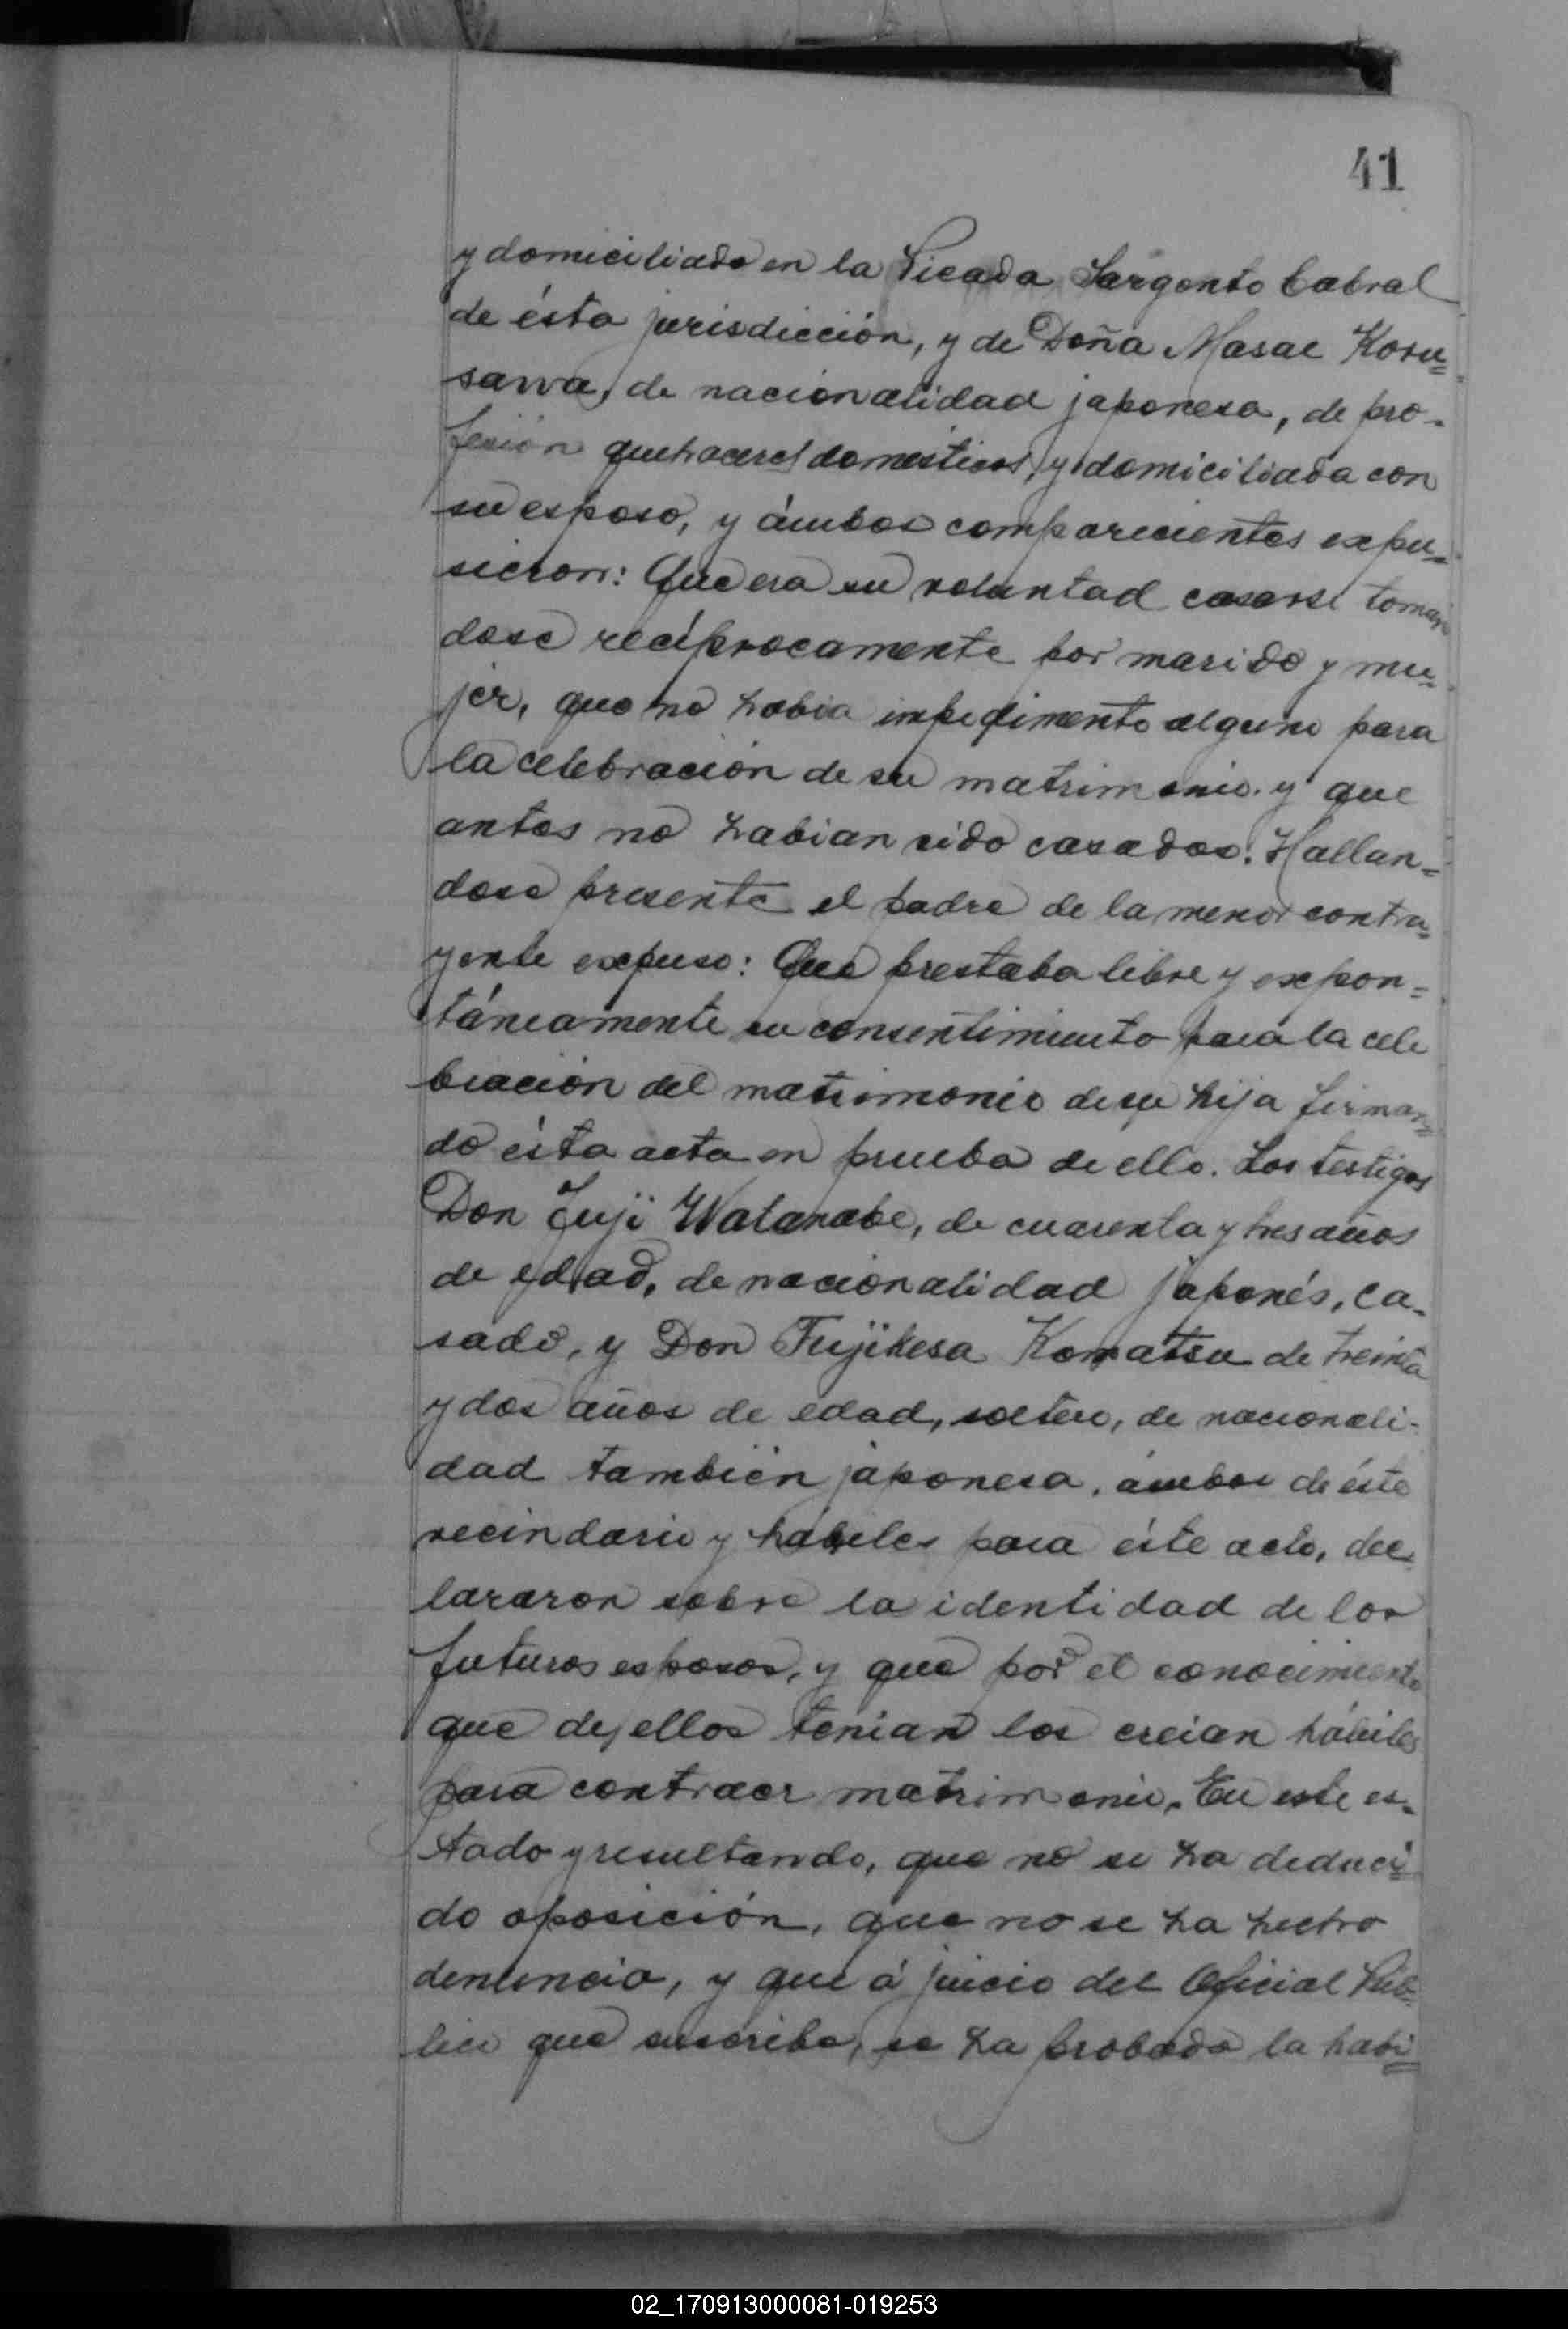 41
y domiciliado en la Picada Sargento Cabral
de ésta jurisdicción, y de Doña Masae Koru=
sawa, de nacionalidad japonesa, de pro-
fesión quehaceres domésticos, y domiciliada con
su esposo, y ámbos comparecientes expu=
sieron: Que era su voluntad casarse toman
dose recíprocamente por marido y mu=
jer, que no habia impedimento alguno para
la celebración de su matrimonio. y que
antes no habian sido casados. Hallan=
dose presente el padre de la menor contra=
yente expuso: Que prestaba libre y expon=
táneamente su consentimiento para la cele
bración del matrimonio de su hija firman=
do ésta acta en prueba de ello. Los testigos
Don Juji Watanabe, de cuarenta y tres años
de edad, de nacionalidad japonés, ca-
sado, y Don Fujihesa Komatsu de treinta
y dos años de edad, soltero, de nacionali-
dad también japonesa, ámbos de éste
vecindario y hábiles para éste acto, dec
lararon sobre la identidad de los
futuros esposos, y que por el conocimiento
que de ellos tenian los creian hábiles
para contraer matrimonio. En este es-
tado y resultando, que no se ha deduci=
do oposición, que no se ha hecho
denuncia, y que á juicio del Oficial Púb=
lico que suscribe, se ha probado la habi=
02_170913000081-019253